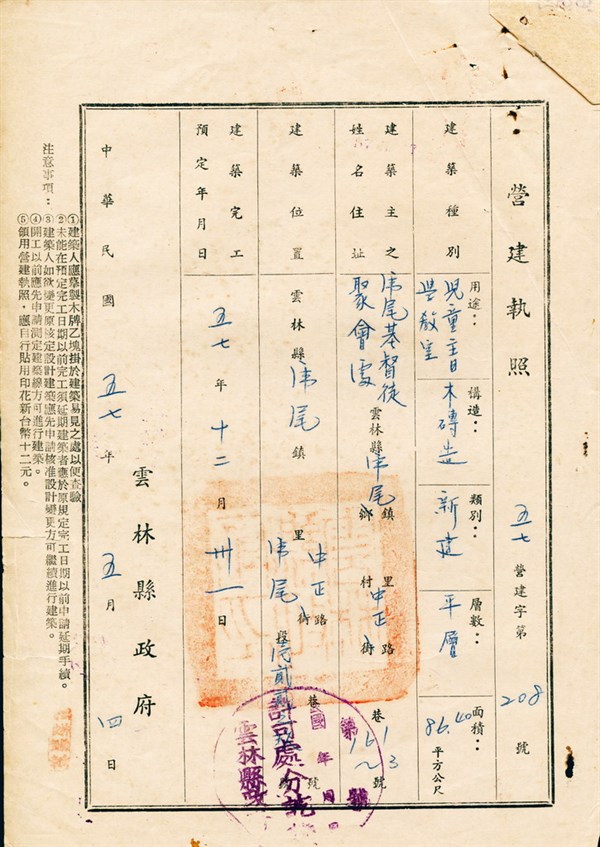 營建執照
五七營建字第208號
建築種別
用途：兒童主日學教室
構造：木磚造
類別：新建
層數：平層
面積：86.40平方公尺
建築主之姓名住址
虎尾基督徒聚會處
雲林縣虎尾鎮鄉 里村 中正路街 巷
建築位置
雲林縣虎尾鎮 里 中正路街 巷 號
虎尾段
建築完工預定年月日
五七年十二月卅一日
雲林縣政府
中華民國五七年五月四日
注意事項：
①建築人應學製木牌乙塊掛於建築易見之處以便查驗
②未能在預定完工日期以前完工須延期建築者應於原規定完工日期以前申請延期手續。
③建築人如欲變更原核定設計建築應先申請核准設計變更方可繼續進行建築。
④開工以前應先申請測定建築線方可進行建築。
⑤領用營建執照，應自行貼用印花新台幣十二元。
雲林縣政
許可處分